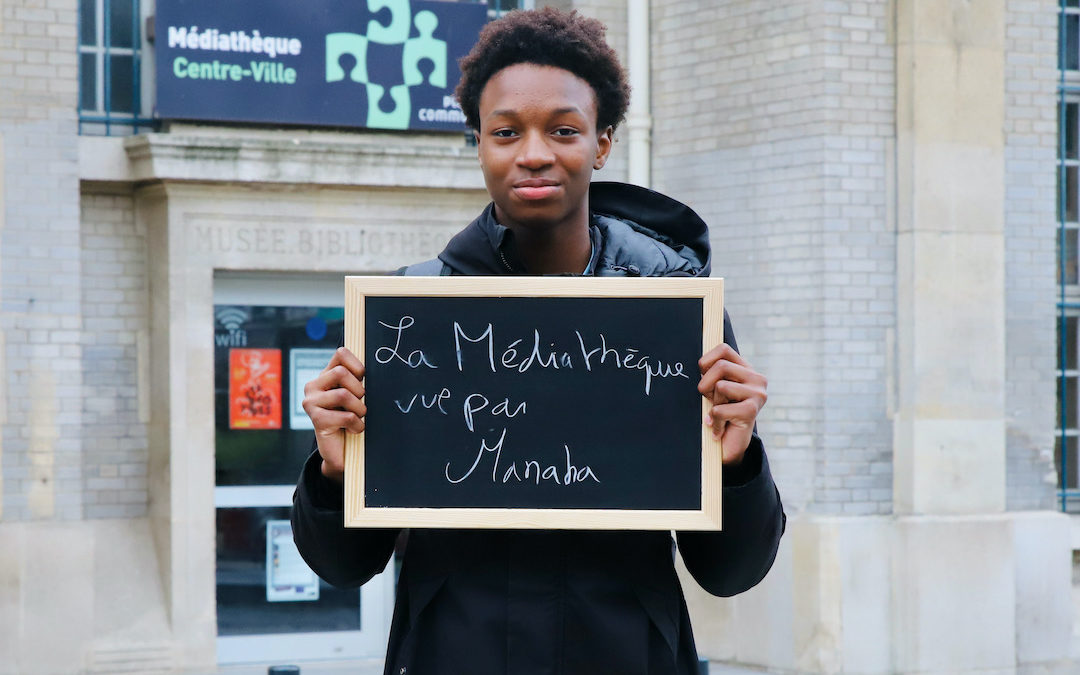 Médiathèque
Centre-Ville
MUSÉE.BIBLIOTHÈ
wifi
La Médiathèque
vue par
Manaba